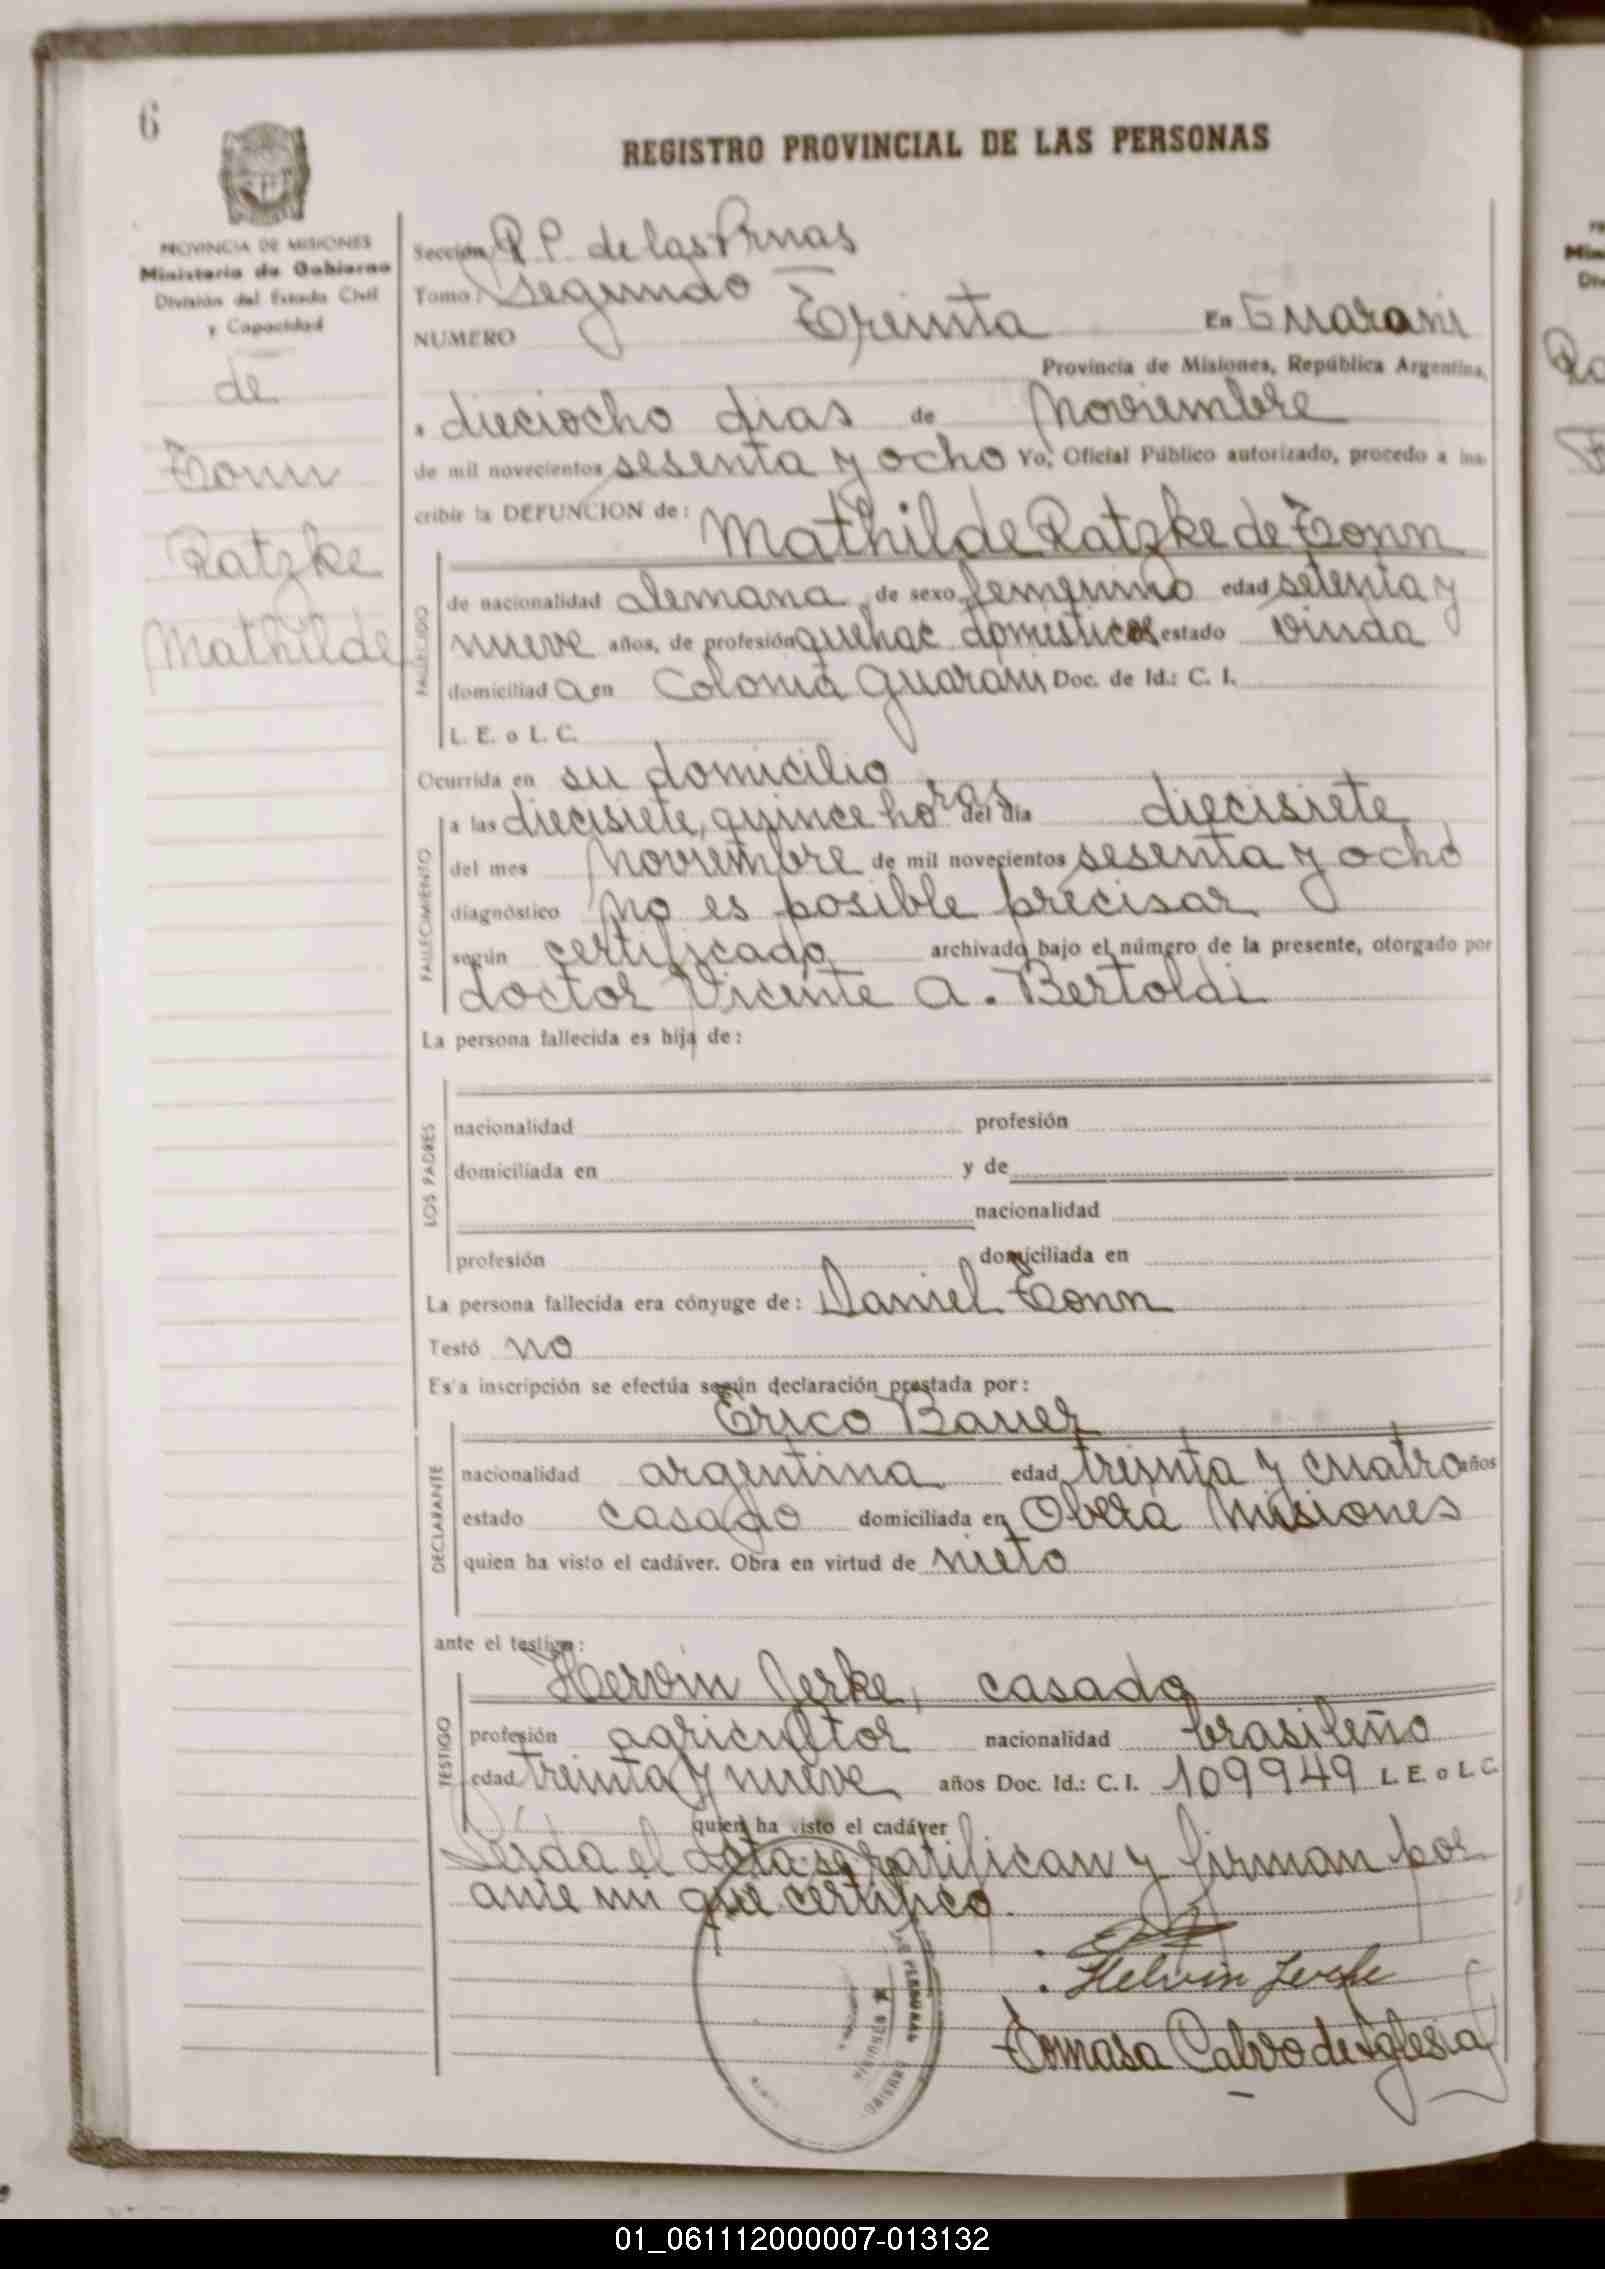 6
REGISTRO PROVINCIAL DE LAS PERSONAS
PROVINCIA DE MISIONES
Ministerio de Gobierno
División del Estado Civil
y Capacidad
de
Tonn
Ratzke
Mathilde
Sección R.P. de las Prnas
Tomo: Segundo
NUMERO Treinta En Guarani
Provincia de Misiones, República Argentina,
a dieciocho dias de Noviembre
de mil novecientos sesenta y ocho Yo, Oficial Público autorizado, procedo a ins-
cribir la DEFUNCION de: Mathilde Ratzke de Tonn
FALLECIDO
de nacionalidad alemana de sexo femenino edad setenta y
nueve años, de profesión quehac domesticos estado viuda
domiciliad a en Colonia Guarani Doc. de Id.: C. I.
L. E. o L. C.
Ocurrida en su domicilio
FALLECIMIENTO
a las diecisiete, quince horas del día diecisiete
del mes Noviembre de mil novecientos sesenta y ocho
diagnóstico no es posible precisar
según certificado archivado bajo el número de la presente, otorgado por
doctor Vicente A. Bertoldi
La persona fallecida es hija de:
LOS PADRES
nacionalidad profesión
domiciliada en y de
nacionalidad
profesión domiciliada en
La persona fallecida era cónyuge de: Daniel Tonn
Testó no
Es'a inscripción se efectúa según declaración prestada por:
Erico Bauer
DECLARANTE
nacionalidad argentina edad treinta y cuatro años
estado casado domiciliada en Obera Misiones
quien ha visto el cadáver. Obra en virtud de nieto
ante el testigo:
Hervin Jerke, casado
TESTIGO
profesión agricultor nacionalidad brasileño
edad treinta y nueve años Doc. Id.: C. I. 109949 L. E. o L. C.
quien ha visto el cadáver
Leída el acta se ratifican y firman por
ante mi que certifico.
Helvin Jerke
Tomasa Calvo de Iglesia
01_061112000007-013132